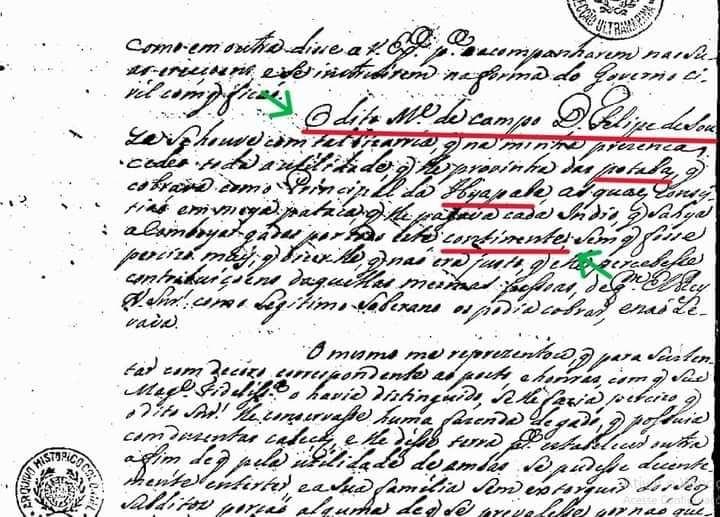 SECÇÃO ULTRAMARINA
como em outra disse a V. Exª. pª. o acompanharem nas su-
as e se instruirem na forma do Governo ci-
vil com q̃ ficaõ.
O dito Mᵉ. de Campo D. Felipe de Sou-
za se houve com tal bizarria, q̃ na minha presença
ceder toda a utilidade q̃ lhe provinha das potaba, q̃
cobrava como Principal da Ibyapaba as quaes consis-
tiaõ em meya pataca q̃ lhe pagava cada Indio q̃ sahya
a comboyar gados por todo este continente, sem q̃ fosse
percizo mais, q̃ dizerlhe q̃ naõ era justo q̃ elle percebesse
contribuiçoens daquellas mesmas pessoas, de qᵐ. ElRey
N. Snr. como legitimo Soberano os podia cobrar, e naõ le-
vava.
O mesmo me reprezentou q̃ para susten-
tar com decoro correspondente ao posto, e honras, com q̃ Sua
Magᵉ. Fidelisˢᵃ. o havia distinguido, se lhe fazia percizo q̃
o dito Snr. lhe conservasse huma fazenda de gado, q̃ possuia
com duzentas cabeças, e lhe désse terra pª. estabelecer outra
a fim de q̃ pela utilidade de ambas se pudesse decente-
mente e a sua familia sem extorquir dos seos
Subditos porçaõ alguma de q̃ se prevalece por naõ que-
ARQUIVO HISTORICO COLONIAL